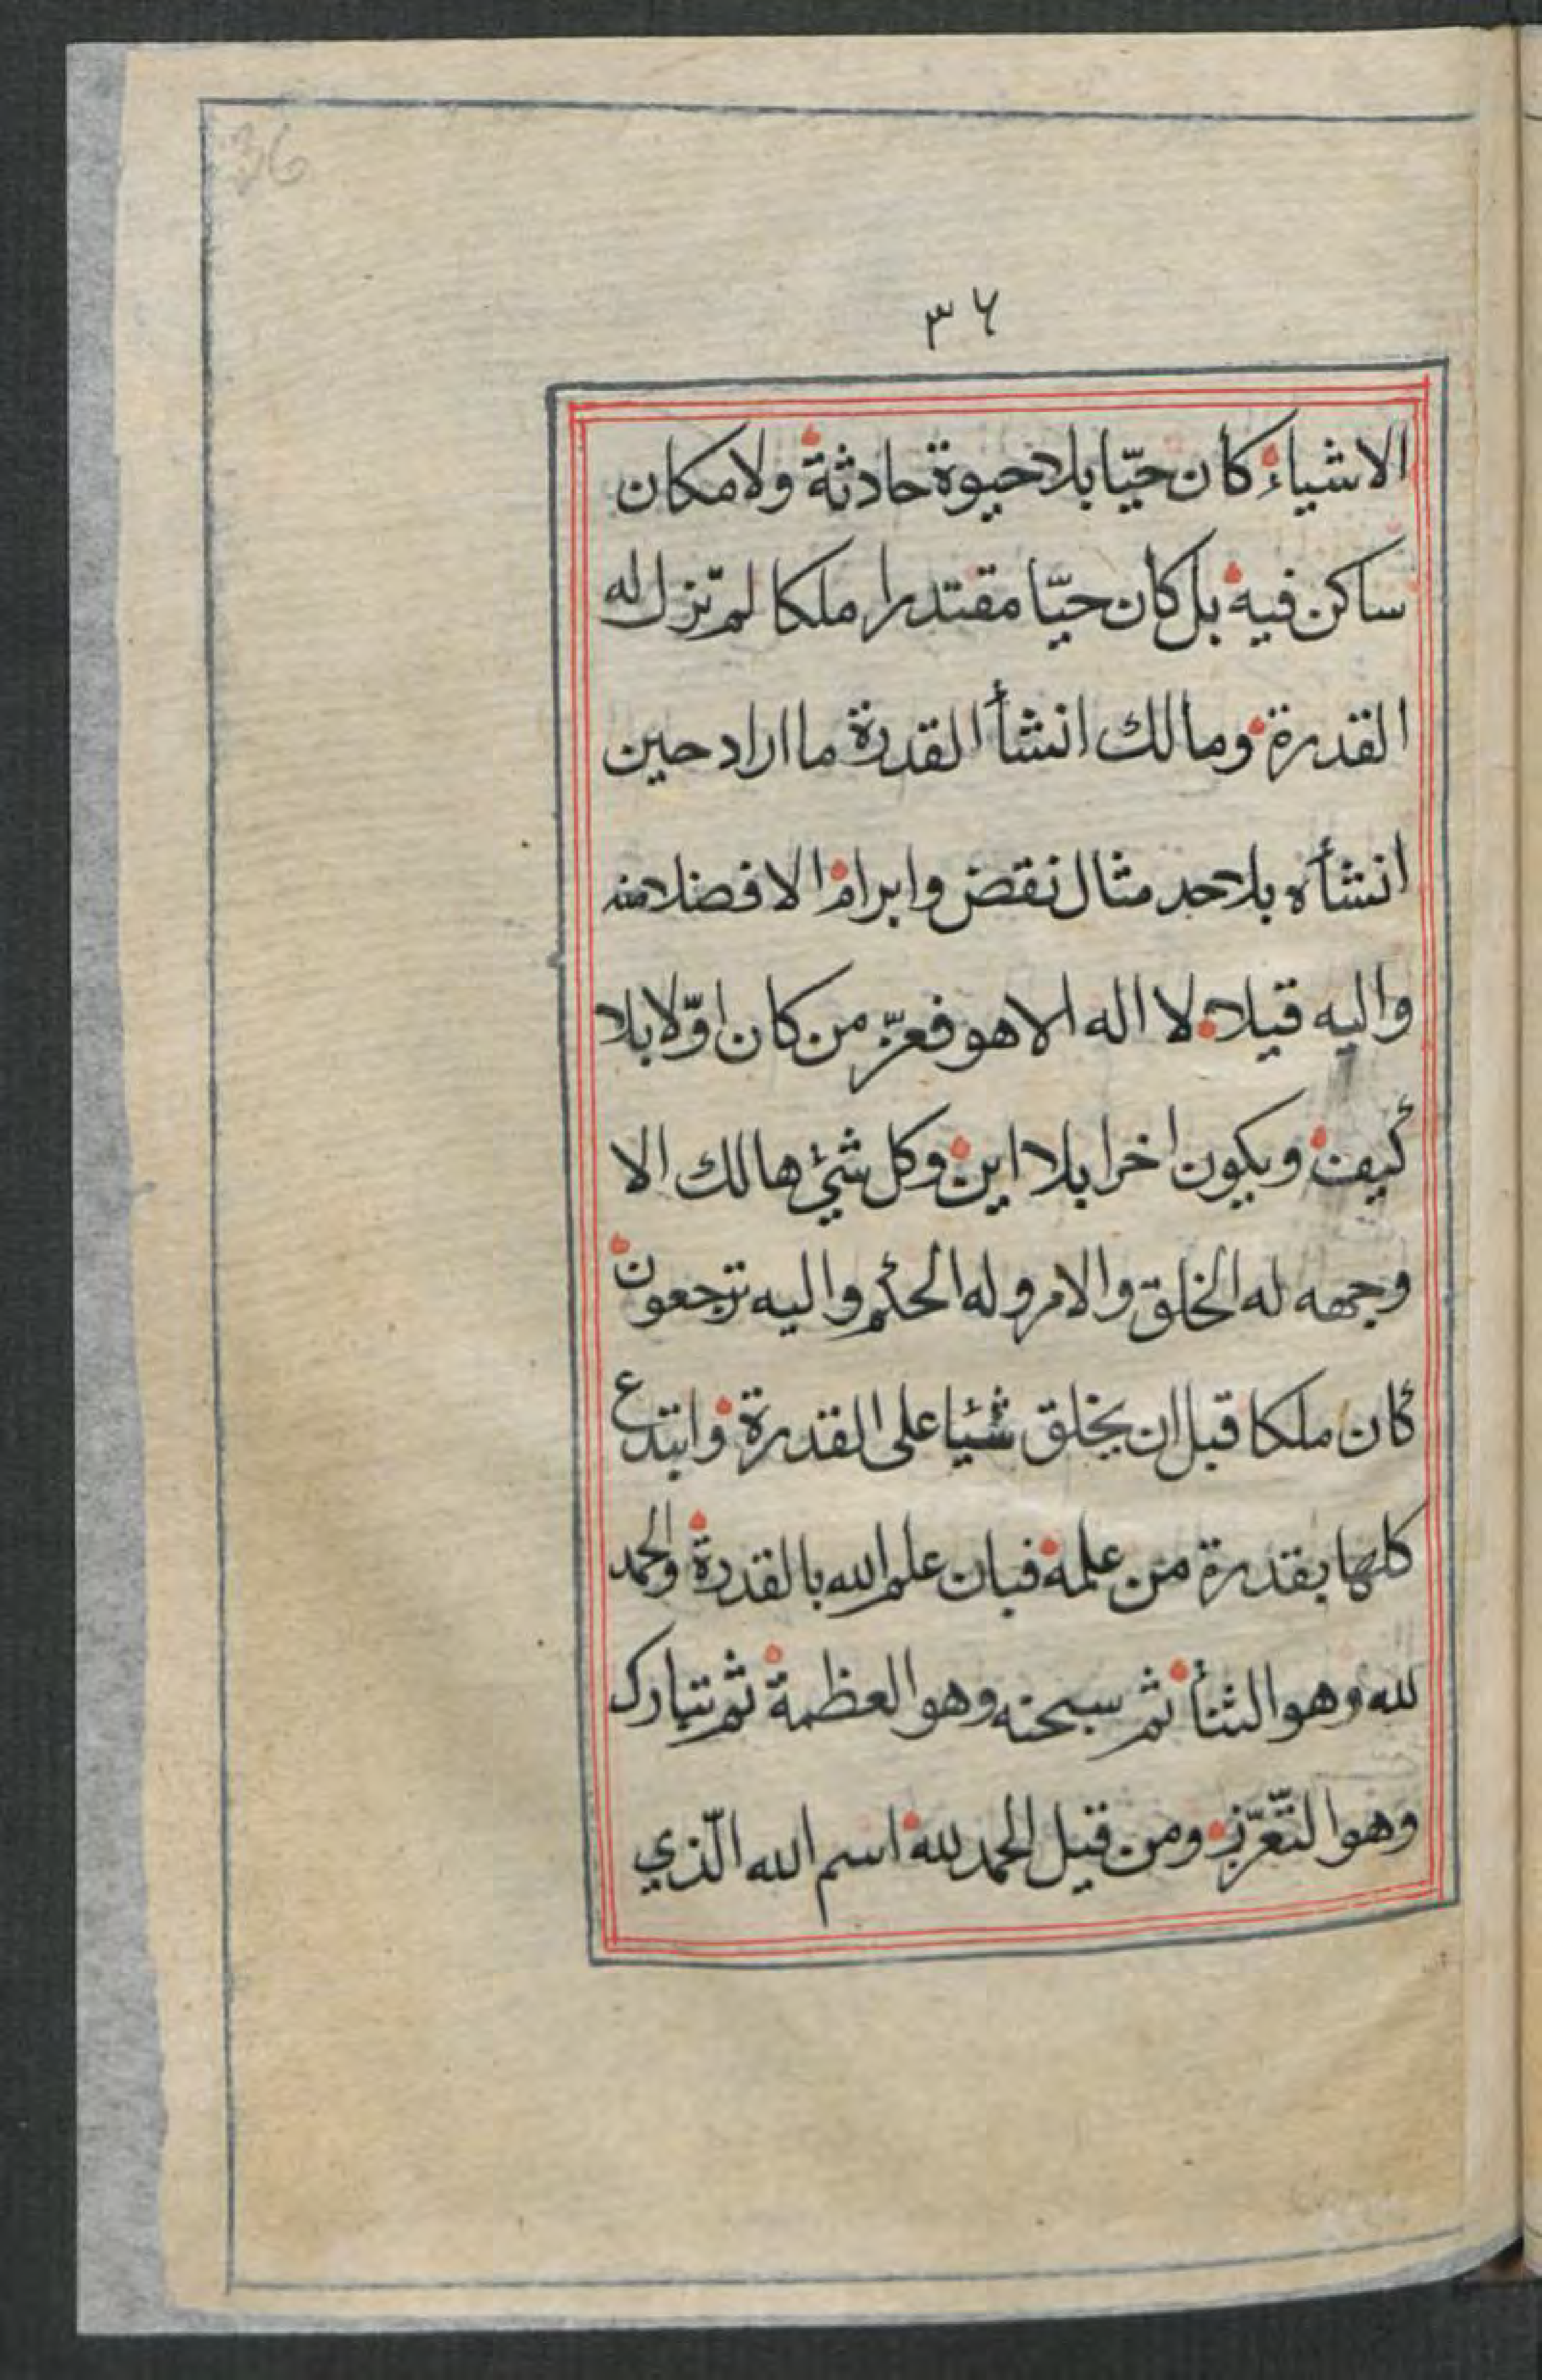 36
٣٦
الاشياء كان حيّا بلا حيوة حادثة ولا مكان
ساكن فيه بل كان حيّا مقتدرا ملكا لم تزل له
القدرة ومالك انشأ القدرة ما اراد حين
انشأه بلا حد مثال نقض وابرام الا فضلا منه
واليه قيلا لا اله الا هو فعزّ من كان اوّلا بلا
كيف ويكون اخرا بلا اين وكل شئ هالك الا
وجهه له الخلق والامر وله الحكم واليه ترجعون
كان ملكا قبل ان يخلق شئيا على القدرة وابتدع
كلها بقدرة من علمه فبان علم الله بالقدرة والحمد
لله وهو الثنأ ثم سبحنه وهو العظمة ثم تبارك
وهو التّعزّز ومن قبل الحمد لله اسم الله الّذي